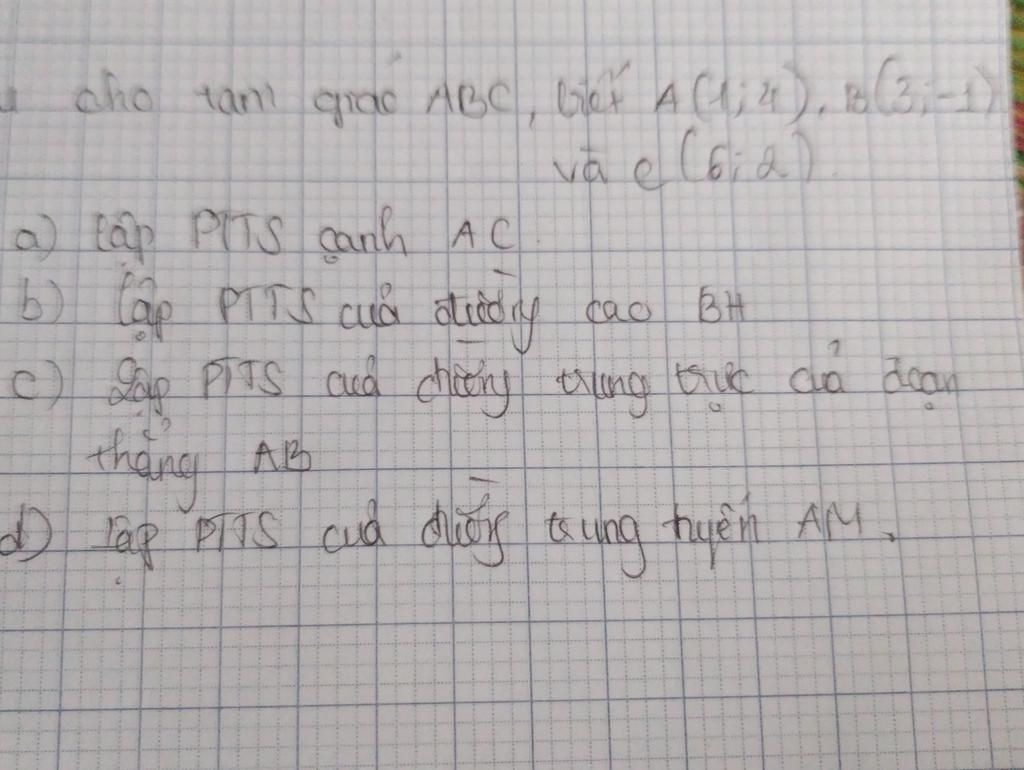 cho tam giác ABC, biết A(1;4), B(3;-1)
và C(6;2).
a) Lập PTTS cạnh AC.
b) Lập PTTS của đường cao BH
c) Lập PTTS của đường trung trực của đoạn
thẳng AB
d) Lập PTTS của đường trung tuyến AM.